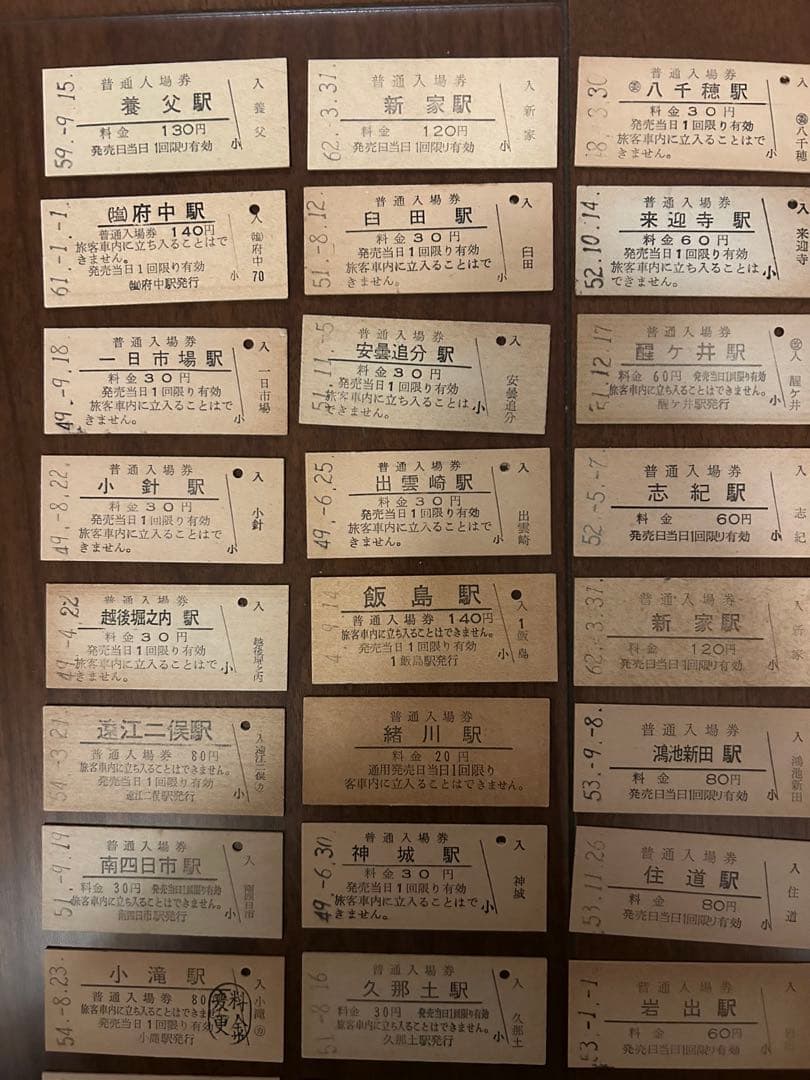 59.-9.15.
普通入場券
養父駅
料金 130円
発売日当日1回限り有効
小
入
養父
62.-3.31.
普通入場券
新家駅
料金 120円
発売日当日1回限り有効
小
入
新家
普通入場券
㋶八千穂駅
料金30円
発売当日1回限り有効
旅客車内に立入ることはで
きません。
小
入
八千穂
61.-1.-1.
(塩)府中駅
普通入場券 140円
旅客車内に立ち入ることはで
きません。
発売当日1回限り有効
(塩)府中駅発行
小
入
(塩)府中
70
51.-8.12.
普通入場券
臼田駅
料金30円
発売当日1回限り有効
旅客車内に立入ることはで
きません。
小
入
臼田
52.10.14.
普通入場券
来迎寺駅
料金60円
発売当日1回限り有効
旅客車内に立入ることはで
きません。
小
入
来迎寺
49.-9.18.
普通入場券
一日市場駅
料金30円
発売当日1回限り有効
旅客車内に立入ることはで
きません。
小
入
一日市場
51.11.-5
普通入場券
安曇追分駅
料金30円
発売当日1回限り有効
旅客車内に立入ることは
できません。
小
入
安曇追分
51.12.17
普通入場券
醒ケ井駅
料金 60円 発売当日1回限り有効
旅客車内に立ち入ることはできません。
醒ケ井駅発行
小
入
醒ケ井
49.-8.22.
普通入場券
小針駅
料金30円
発売当日1回限り有効
旅客車内に立入ることはで
きません。
小
入
小針
49.-6.25.
普通入場券
出雲崎駅
料金30円
発売当日1回限り有効
旅客車内に立入ることはで
きません。
小
入
出雲崎
52.-5.-7.
普通入場券
志紀駅
料金 60円
発売日当日1回限り有効
小
入
志紀
49.-4.22
普通入場券
越後堀之内駅
料金30円
発売当日1回限り有効
旅客車内に立入ることはで
きません。
小
入
越後堀之内
飯島駅
普通入場券 140円
旅客車内に立ち入ることはできません。
発売当日1回限り有効
1飯島駅発行
小
入
1
飯島
62.-3.31.
普通入場券
新家駅
料金 120円
発売日当日1回限り有効
小
入
新家
54.-3.21.
遠江二俣駅
普通入場券 80円
旅客車内に立ち入ることはできません。
発売当日1回限り有効
遠江二俣駅発行
小
入
遠江二俣
普通入場券
緒川駅
料金 20円
通用発売日当日1回限り
客車内に立入ることはできません。
53.-9.-8.
普通入場券
鴻池新田駅
料金 80円
発売日当日1回限り有効
小
入
鴻池新田
51.-9.19
普通入場券
南四日市駅
料金 30円 発売当日1回限り有効
旅客車内に立ち入ることはできません。
南四日市駅発行
小
入
南四日市
49.-6.30
普通入場券
神城駅
料金30円
発売当日1回限り有効
旅客車内に立入ることはで
きません。
小
入
神城
53.11.26
普通入場券
住道駅
料金 80円
発売日当日1回限り有効
小
入
住道
54.-8.23.
小滝駅
普通入場券 80
料金変更
旅客車内に立ち入ることはできません。
発売当日1回限り有効
小滝駅発行
入
小滝
51.-8.16
普通入場券
久那土駅
料金 30円 発売当日1回限り有効
旅客車内に立ち入ることはできません。
久那土駅発行
小
入
久那土
53.-1.-1
普通入場券
岩出駅
料金 60円
発売日当日1回限り有効
小
入